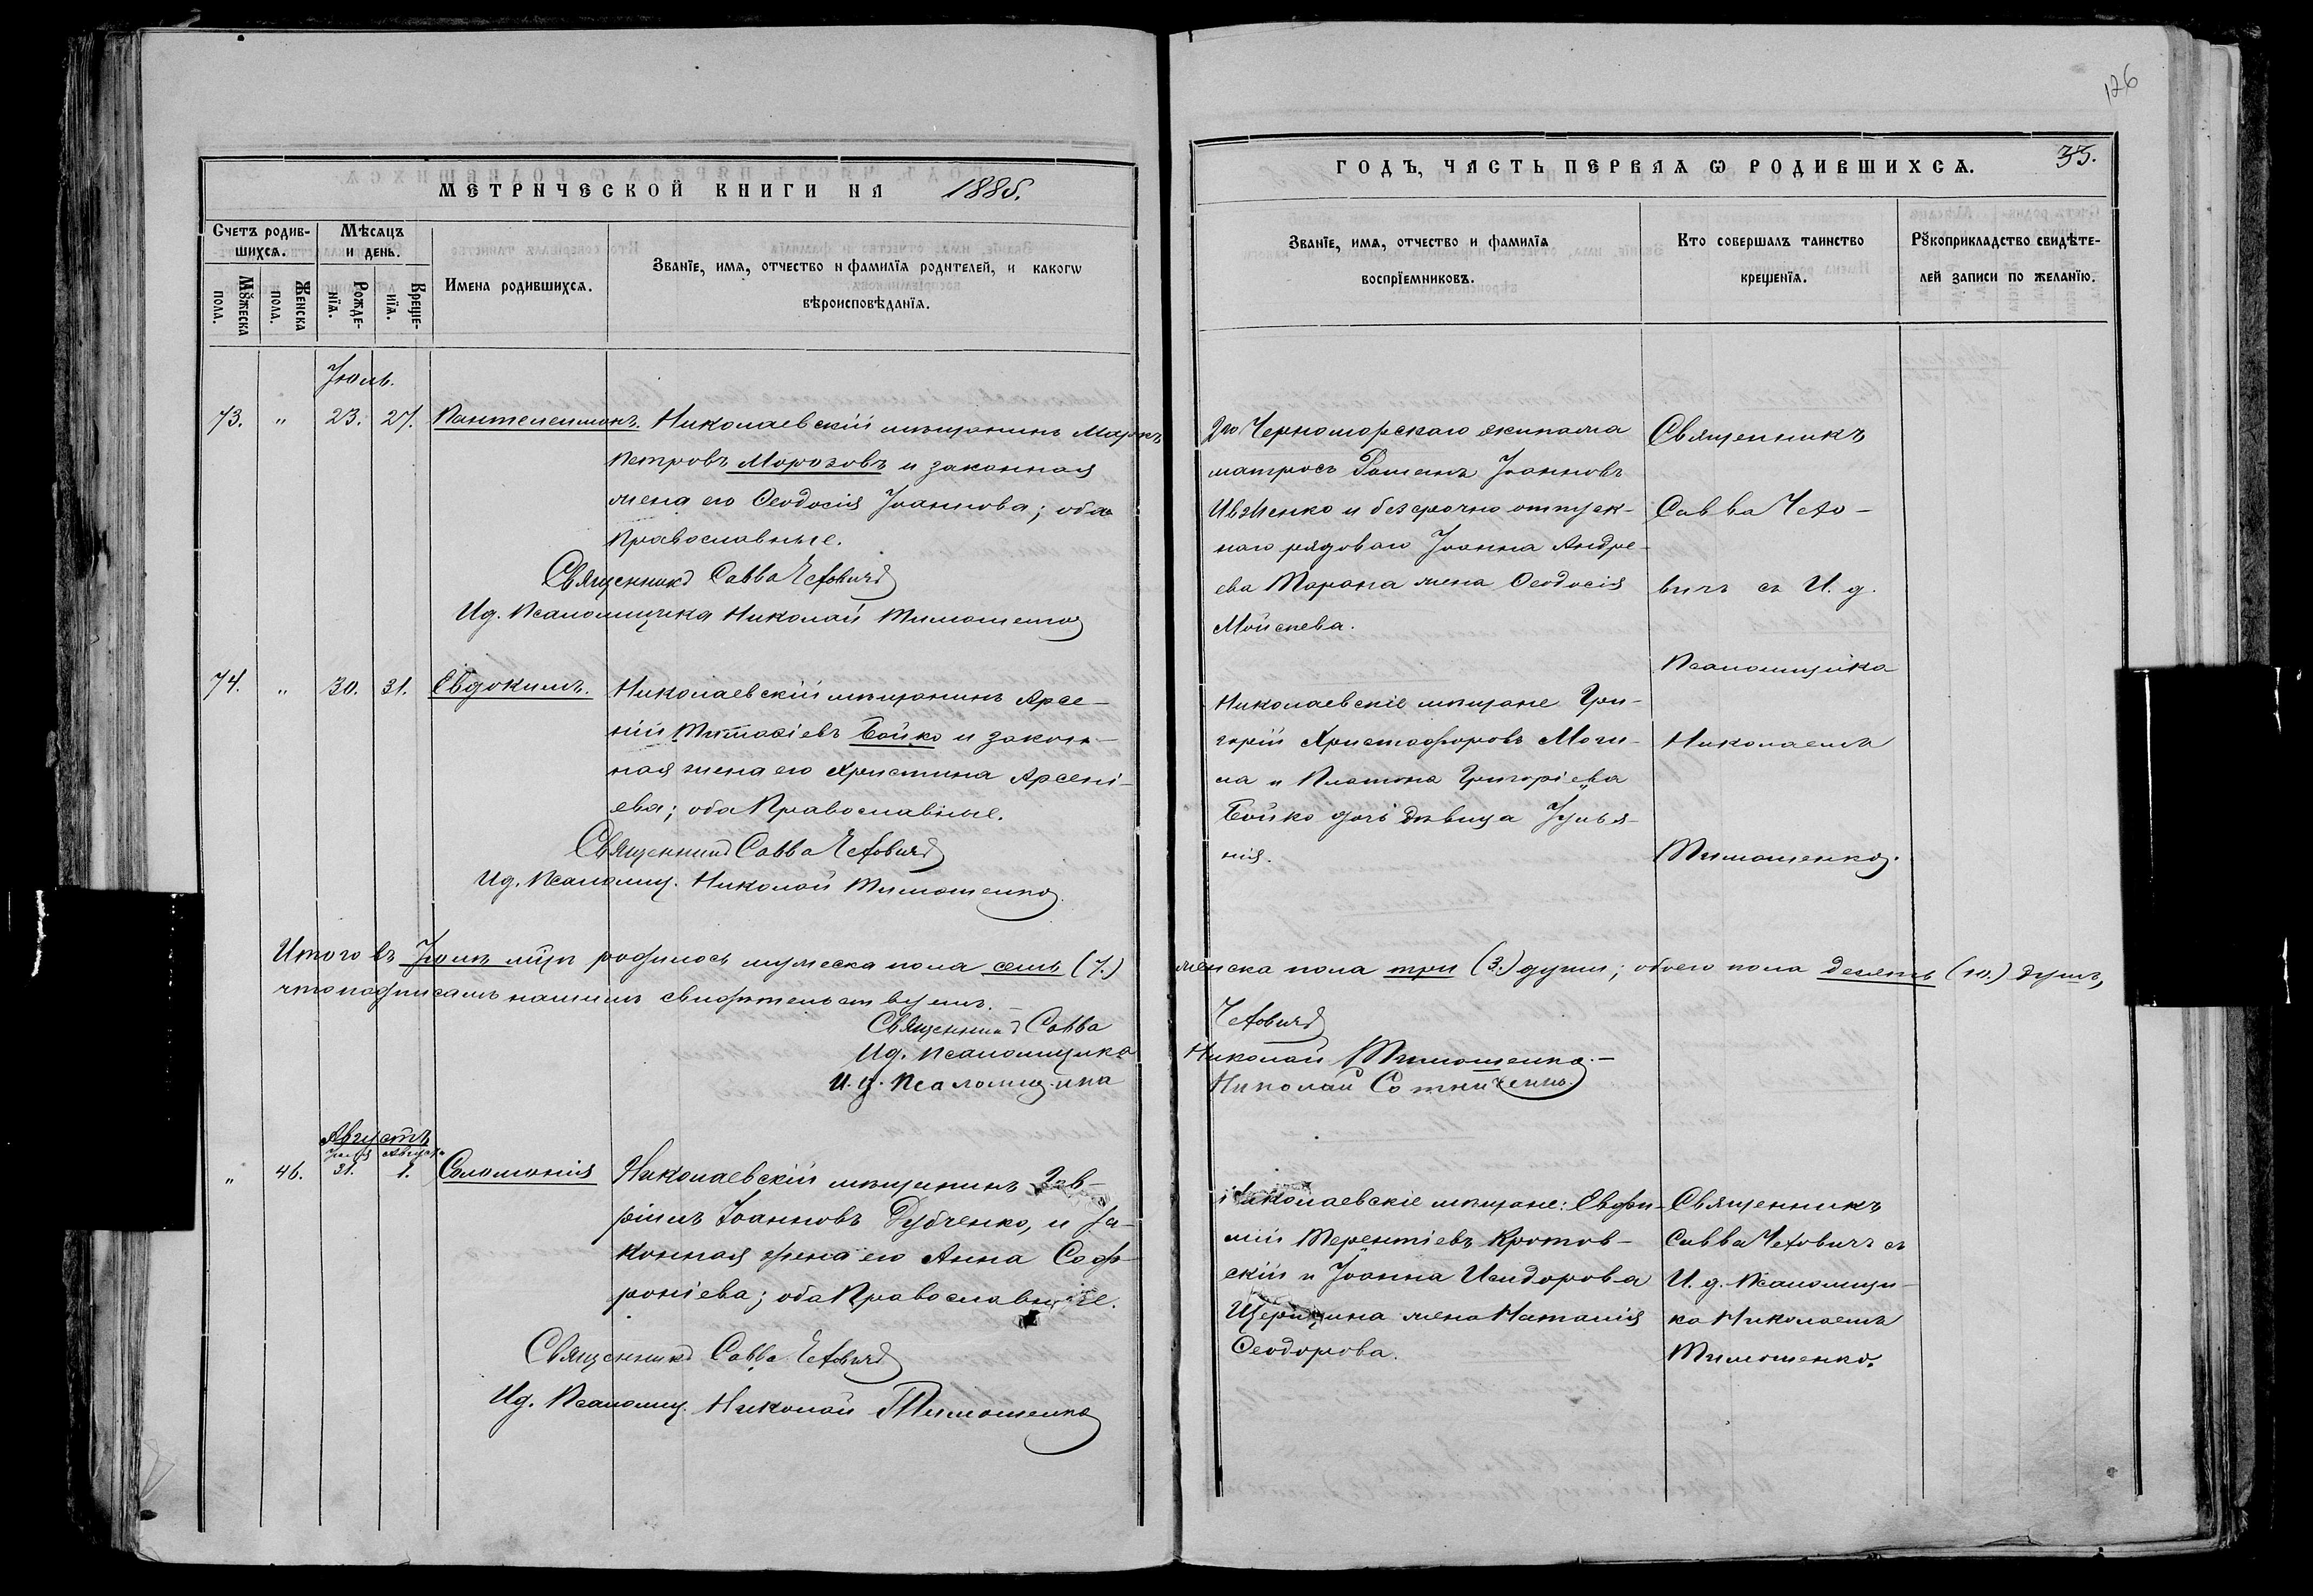 МЕТРИЧЕСКОЙ КНИГИ НА 1885.
Счетъ родив-
шихся.
Мѣсяцъ
и день.
Мꙋжеска
пола.
Женска
пола.
Рожде-
нїя.
Креще-
нїя.
Имена родившихся.
Званїе, имя, отчество и фамилїя родителей, и какогѡ
вѣроисповѣданїя.
Іюль.
73. " 23. 27. Пантелеимонъ. Николаевскій мѣщанинъ Маркъ
Петровъ Морозовъ и законная
жена его Ѳеодосія Іоаннова; оба
Православные.
Священникъ Савва Чеховичъ
И.д. Псаломщика Николай Тимошенко
74. " 30. 31. Евдокимъ. Николаевскій мѣщанинъ Арсе-
ній Бойко и закон-
ная жена его Христина Арсені-
ева; оба Православные.
Священникъ Савва Чеховичъ
И.д. Псаломщ. Николай Тимошенко
Итого въ Іюлѣ мцѣ родилось мужеска пола семь (7.)
что подписомъ нашимъ свидѣтельствуемъ.
Священникъ Савва
И.д. Псаломщика
И.д. Псаломщика
Августъ
Іюля Августа
" 46. 31. 1. Соломонія Николаевскій мѣщанинъ Гав-
ріилъ Іоанновъ Дубченко, и за-
конная жена его Анна Соф-
роніева; оба Православные.
Священникъ Савва Чеховичъ
И.д. Псаломщ. Николай Тимошенко
126
ГОДЪ, ЧАСТЬ ПЕРВАЯ Ѡ РОДИВШИХСЯ. 35.
Званїе, имя, отчество и фамилїя
воспрїемниковъ.
Кто совершалъ таинство
крещенїя.
Рꙋкоприкладство свидѣте-
лей записи по желанїю.
2го Черноморскаго экипажа
матросъ Романъ Іоанновъ
Ивженко и безсрочно отпуск-
наго рядоваго Іоанна Андре-
ева Тарана жена Ѳеодосія
Мойсеева.
Священникъ
Савва Чехо-
вичъ съ И. д.
Псаломщика
Николаемъ
Тимошенко.
Николаевскіе мѣщане Гри-
горій Христофоровъ Моги-
ла и Платона Григоріева
Бойко дочь дѣвица Іулья-
нія.
женска пола три (3.) души; обоего пола десять (10.) душъ,
Чеховичъ
Николай Тимошенко.-
Николай Сотниченко.
Николаевскіе мѣщане: Евфи-
мій Терентіевъ Кротов-
скій и Іоанна Исидорова
жена Наталія
Ѳеодорова.
Священникъ
Савва Чеховичъ съ
И. д. Псаломщи-
ка Николаемъ
Тимошенко.